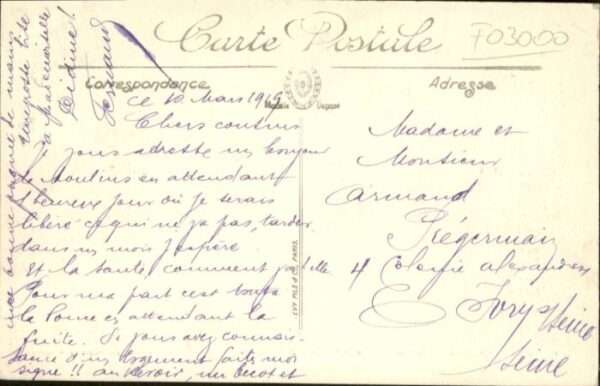 Carte Postale
F03000
Correspondance
Adresse
ce 10 Mars 1919
Chers cousins
Je vous adresse un bonjour
de Moulins en attendant
l'heureux jour où je serais
libéré ce qui ne va pas tarder
dans un mois j'espère
Et la santé comment va t'elle
Pour ma part c'est toujours
la bonne en attendant la
suite. Si vous avez connais-
sance d'un logement faites moi
signe !! au revoir, un bécot et
une bonne poignée de mains
votre
Fernand
Madame et
Monsieur
Armand
Régermain
4 Colonie alexandre
Ivry s/ Seine
Seine
LEVY FILS & Cie PARIS